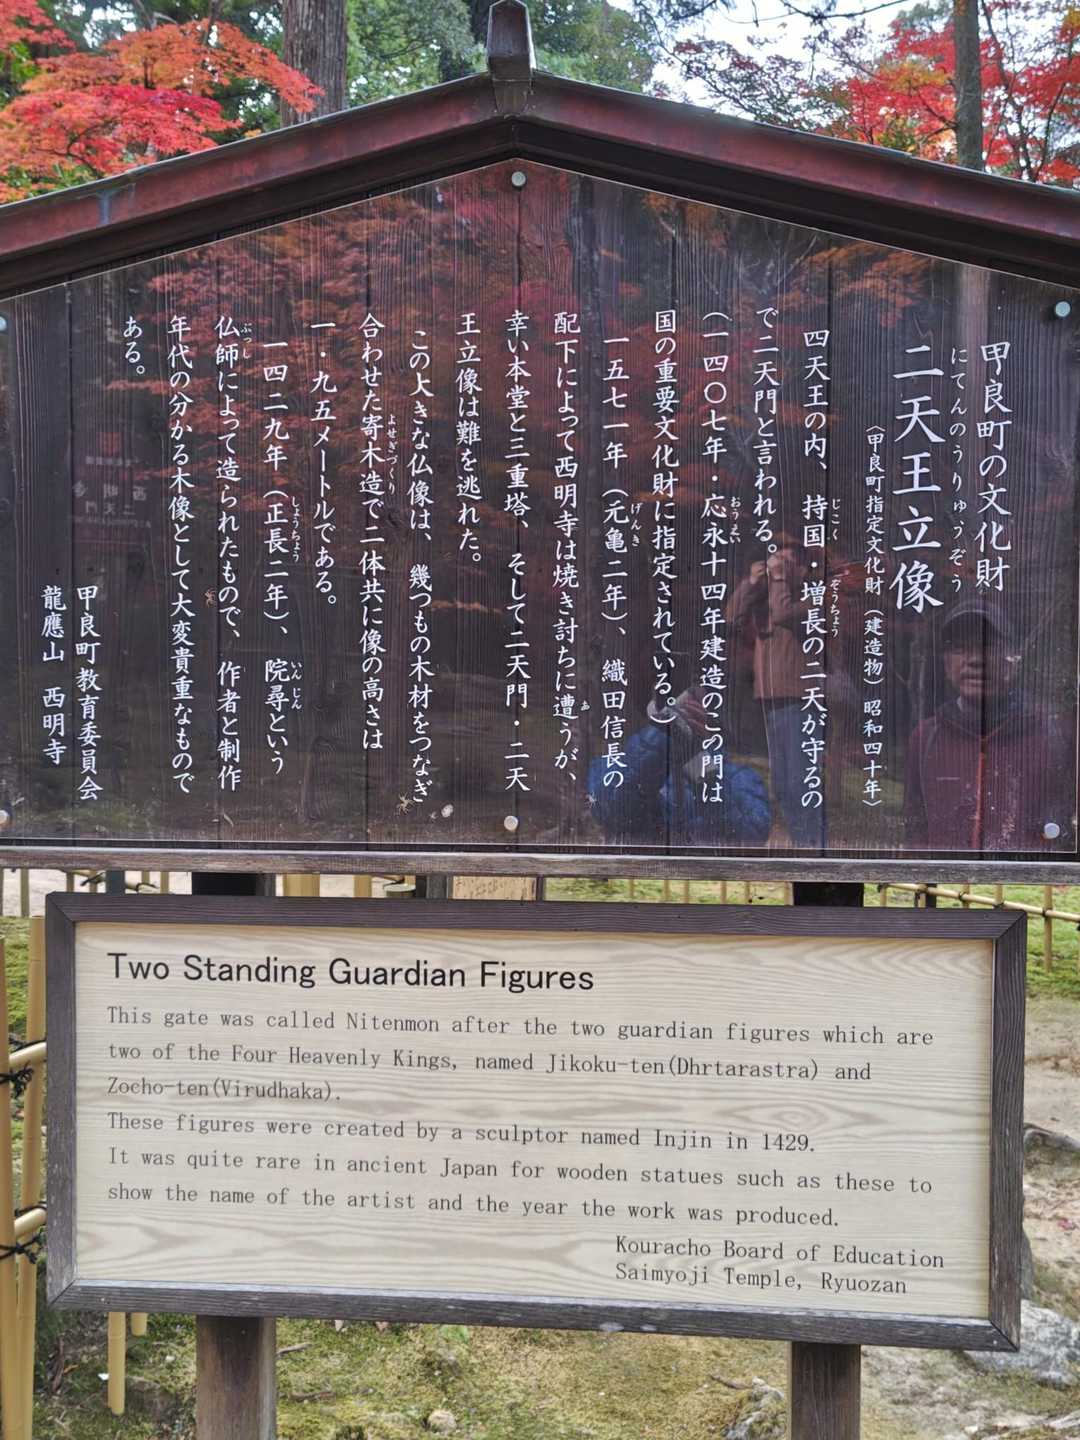 甲良町の文化財
にてんのうりゅうぞう
二天王立像
(甲良町指定文化財(建造物)昭和四十年)
四天王の内、持国・増長の二天が守るの
じこく
ぞうちょう
で二天門と言われる。
(一四〇七年・応永十四年建造のこの門は
おうえい
国の重要文化財に指定されている。)
一五七一年(元亀二年)、織田信長の
げんき
配下によって西明寺は焼き討ちに遭うが、
あ
幸い本堂と三重塔、そして二天門・二天
王立像は難を逃れた。
この大きな仏像は、幾つもの木材をつなぎ
合わせた寄木造で二体共に像の高さは
よせぎづくり
一・九五メートルである。
一四二九年(正長二年)、院尋という
しょうちょう
いんじん
仏師によって造られたもので、作者と制作
ぶっし
年代の分かる木像として大変貴重なもので
ある。
甲良町教育委員会
龍應山 西明寺
Two Standing Guardian Figures
This gate was called Nitenmon after the two guardian figures which are
two of the Four Heavenly Kings, named Jikoku-ten(Dhrtarastra) and
Zocho-ten(Virudhaka).
These figures were created by a sculptor named Injin in 1429.
It was quite rare in ancient Japan for wooden statues such as these to
show the name of the artist and the year the work was produced.
Kouracho Board of Education
Saimyoji Temple, Ryuozan